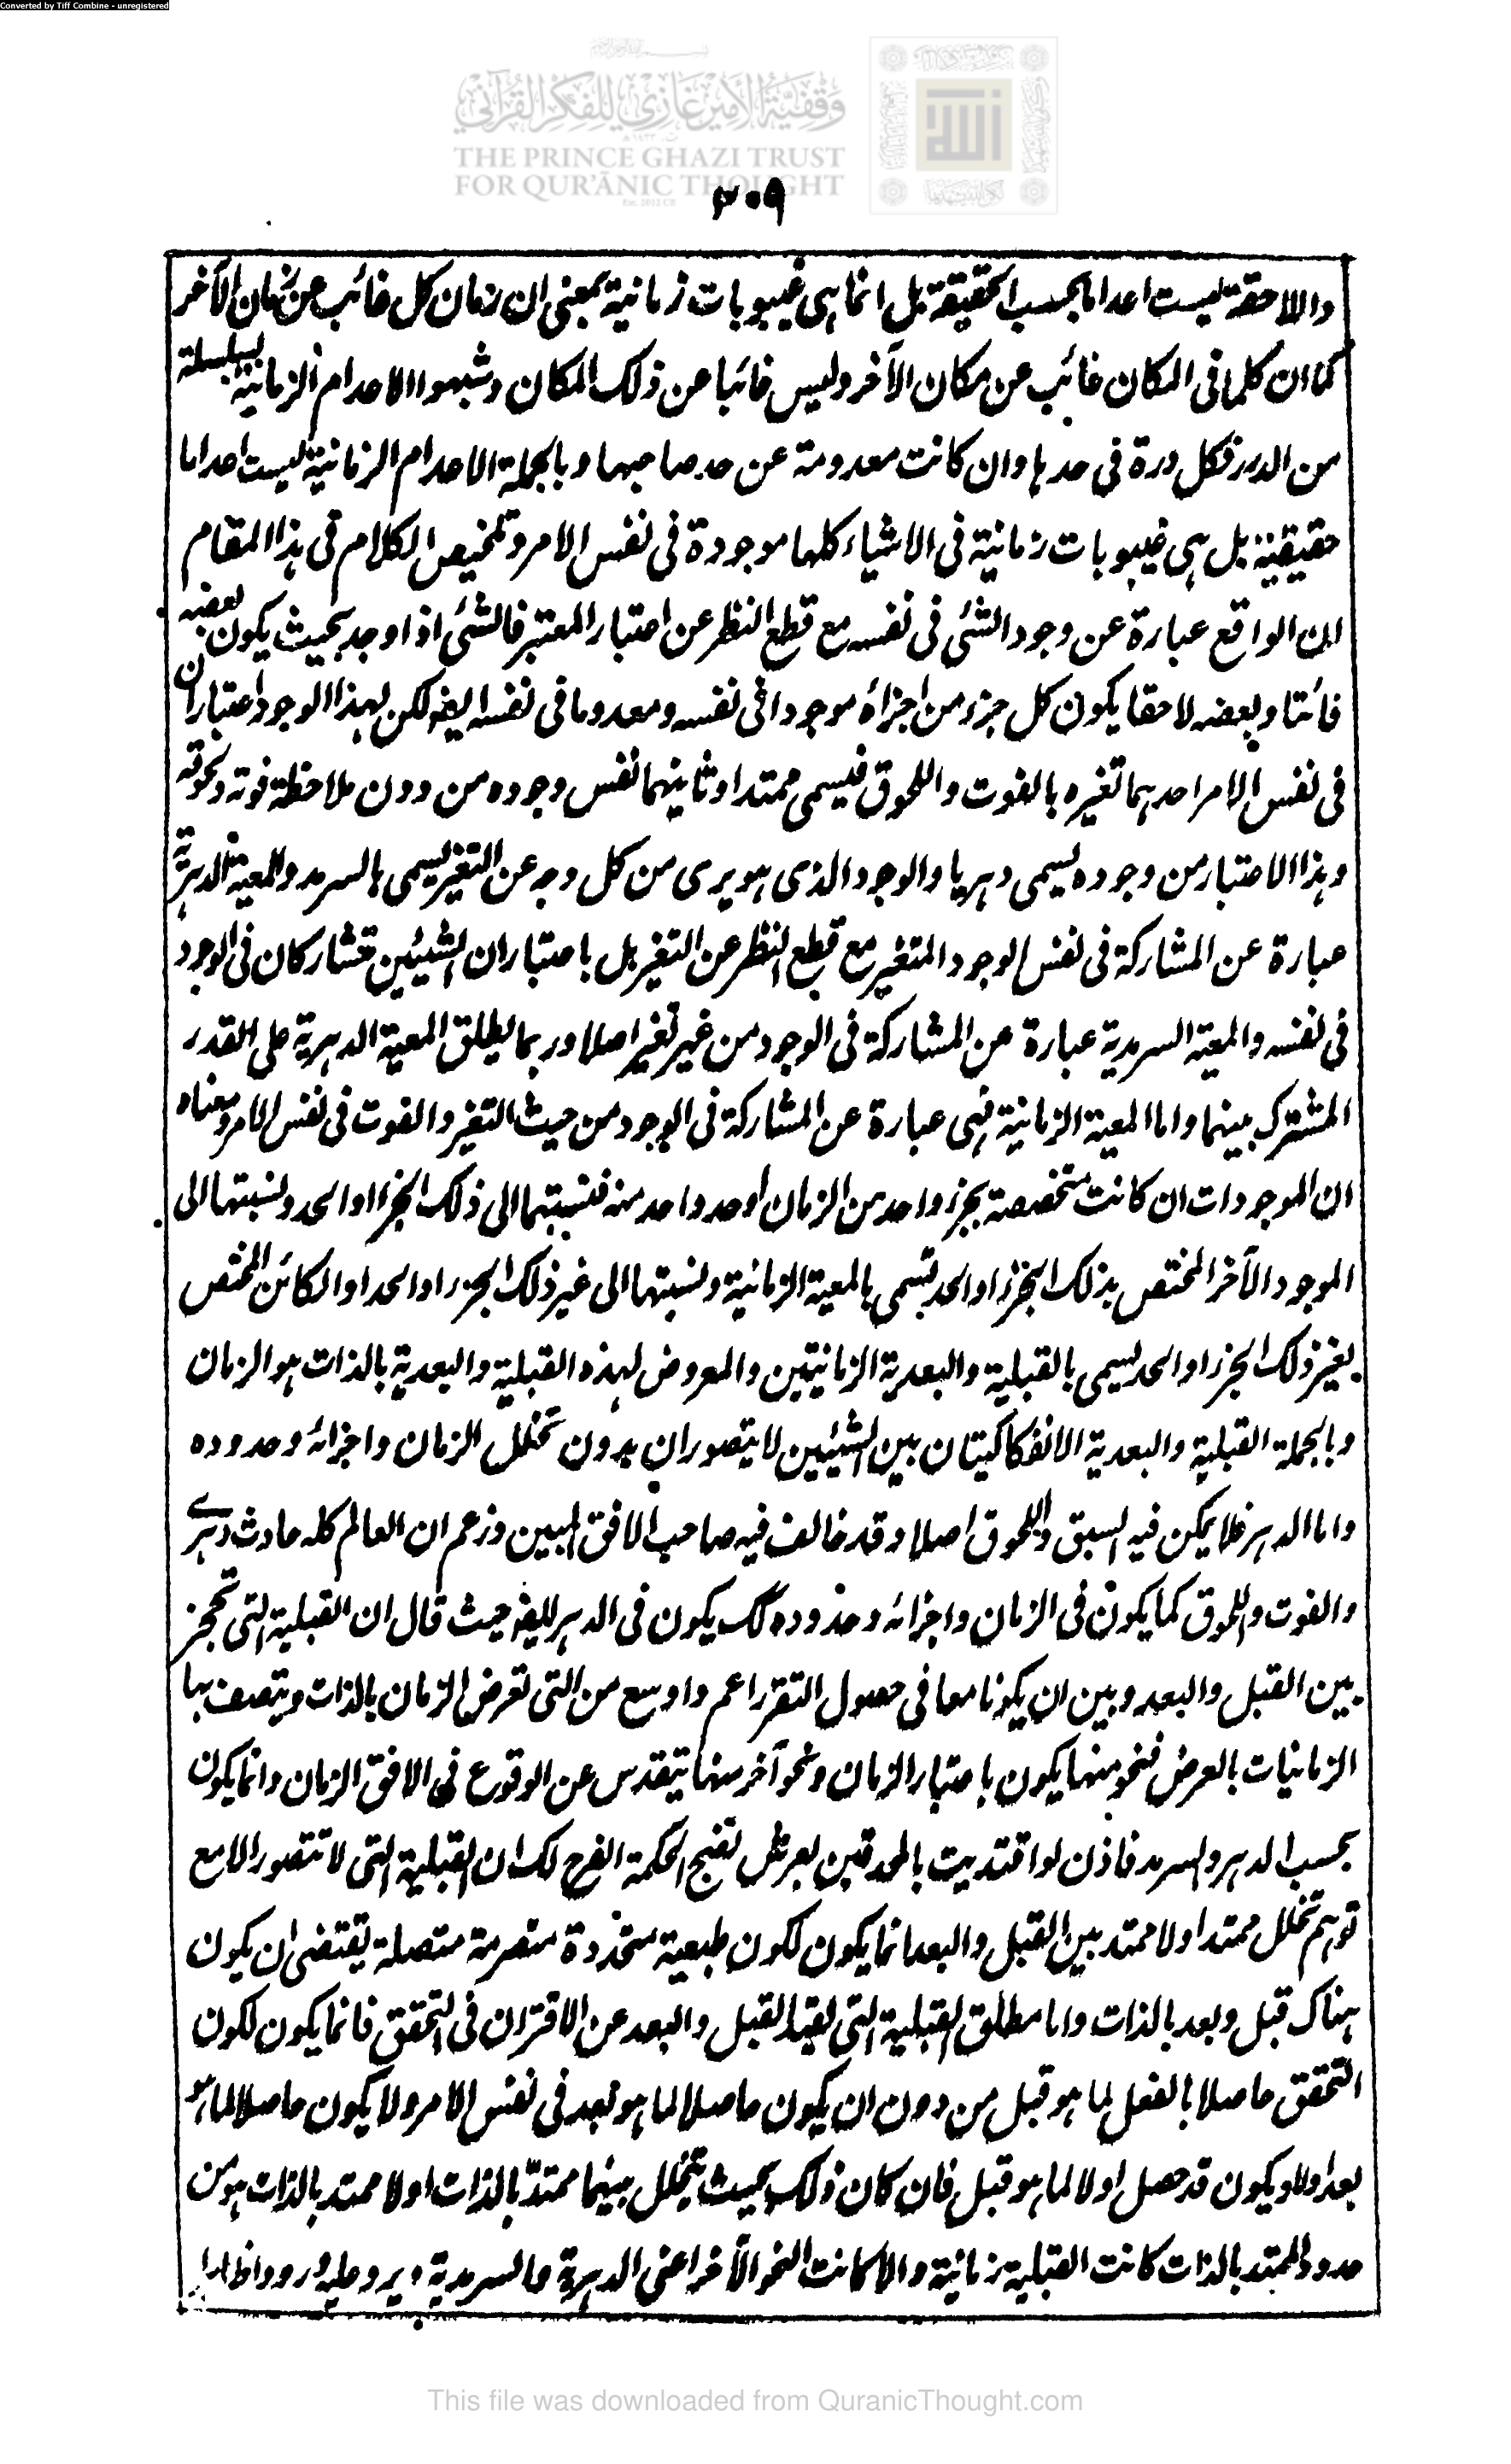 Converted by Tiff Combine - unregistered
وقفية الأمير غازي للفكر القرآني
THE PRINCE GHAZI TRUST
FOR QUR'ĀNIC THOUGHT
Est. 2012 CE
٣٠٩
واللاحقة ليست اعداما بحسب الحقيقة بل انما هى غيبوبات زمانية بمعنى ان زمان كل غائب عن زمان الآخر
كما ان كلما فى المكان غائب عن مكان الآخر وليس غائبا عن ذلك المكان وشبهوا الاعدام الزمانية بسلسلة
من الدرر فكل درة فى حدها وان كانت معدومة عن حد صاحبها وبالجملة الاعدام الزمانية ليست اعداما
حقيقية بل هى غيبوبات زمانية فى الاشياء كلها موجودة فى نفس الامر وتلخيص الكلام فى هذا المقام
ان الواقع عبارة عن وجود الشئ فى نفسه مع قطع النظر عن اعتبار المعتبر فالشئ اذا وجد بحيث يكون بعضه
فائتا وبعضه لاحقا يكون كل جزء من اجزائه موجودا فى نفسه ومعدوما فى نفسه ايضا لكن لهذا الوجود اعتباران
فى نفس الامر احدهما تغيره بالفوت واللحوق فيسمى ممتدا وثانيهما نفس وجوده من دون ملاحظة فوته ولحوقه
وهذا الاعتبار من وجوده يسمى دهريا والوجود الذى هو برى من كل وجه عن التغير يسمى بالسرمد والمعية الدهرية
عبارة عن المشاركة فى نفس الوجود المتغير مع قطع النظر عن التغير بل باعتبار ان الشيئين تتشاركان فى الوجود
فى نفسه والمعية السرمدية عبارة عن المشاركة فى الوجود من غير تغير اصلا وربما يطلق المعية الدهرية على القدر
المشترك بينهما واما المعية الزمانية فهى عبارة عن المشاركة فى الوجود من حيث التغير والفوت فى نفس الامر ومعناه
ان الموجودات ان كانت متخصصة بجزء واحد من الزمان او حد واحد منه فنسبتهما الى ذلك الجزء او الحد ونسبتها الى
الموجود الآخر المختص بذلك الجزء او الحد تسمى بالمعية الزمانية ونسبتها الى غير ذلك الجزء او الحد او الكائن المختص
بغير ذلك الجزء او الحد يسمى بالقبلية والبعدية الزمانيتين والمعروض لهذه القبلية والبعدية بالذات هو الزمان
وبالجملة القبلية والبعدية الانفكاكيتان بين الشيئين لا يتصوران بدون تخلل الزمان واجزائه وحدوده
واما الدهر فلا يمكن فيه السبق واللحوق اصلا وقد خالف فيه صاحب الافق المبين وزعم ان العالم كله حادث دهرے
والفوت واللحوق كما يكون فى الزمان واجزائه وحدوده كك يكون فى الدهر ايضا حيث قال ان القبلية التى تحجز
بين القبل والبعد وبين ان يكونا معا فى حصول التقرر اعم واوسع من التى تعرض الزمان بالذات ويتصف بها
الزمانيات بالعرض فنحو منها يكون باعتبار الزمان ونحو آخر منها يتقدس عن الوقوع فى الافق الزمان وانما يكون
بحسب الدهر والسرمد فاذن لو اقتديت بالمحدقين بعرش نضج الحكمة الفرح لك ان القبلية التى لا تتصور الا مع
توهم تخلل ممتد او لا ممتد بين القبل والبعد انما يكون لكون طبيعية متجددة متصرمة متصلة يقتضى ان يكون
هناك قبل وبعد بالذات واما مطلق القبلية التى بقيد القبل والبعد عن الاقتران فى التحقق فانما يكون لكون
التحقق حاصلا بالفعل لما هو قبل من دون ان يكون حاصلا لما هو بعد فى نفس الامر ولا يكون حاصلا لما هو
بعد اولا ويكون قد حصل اولا لما هو قبل فان كان ذلك بحيث يتخلل بينهما ممتد بالذات او لا ممتد بالذات هو من
حدود الممتد بالذات كانت القبلية زمانية والا كانت النحو الآخر اعنى الدهرية والسرمدية ويرد عليه ورودا ظاهرا
This file was downloaded from QuranicThought.com